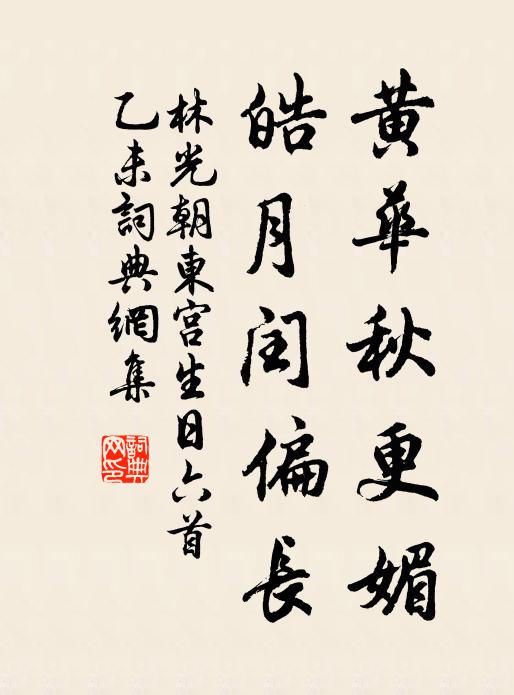 黃華秋更媚
皓月閏偏長
林光朝東宮生日六首
乙未詞典網集
詞典网印